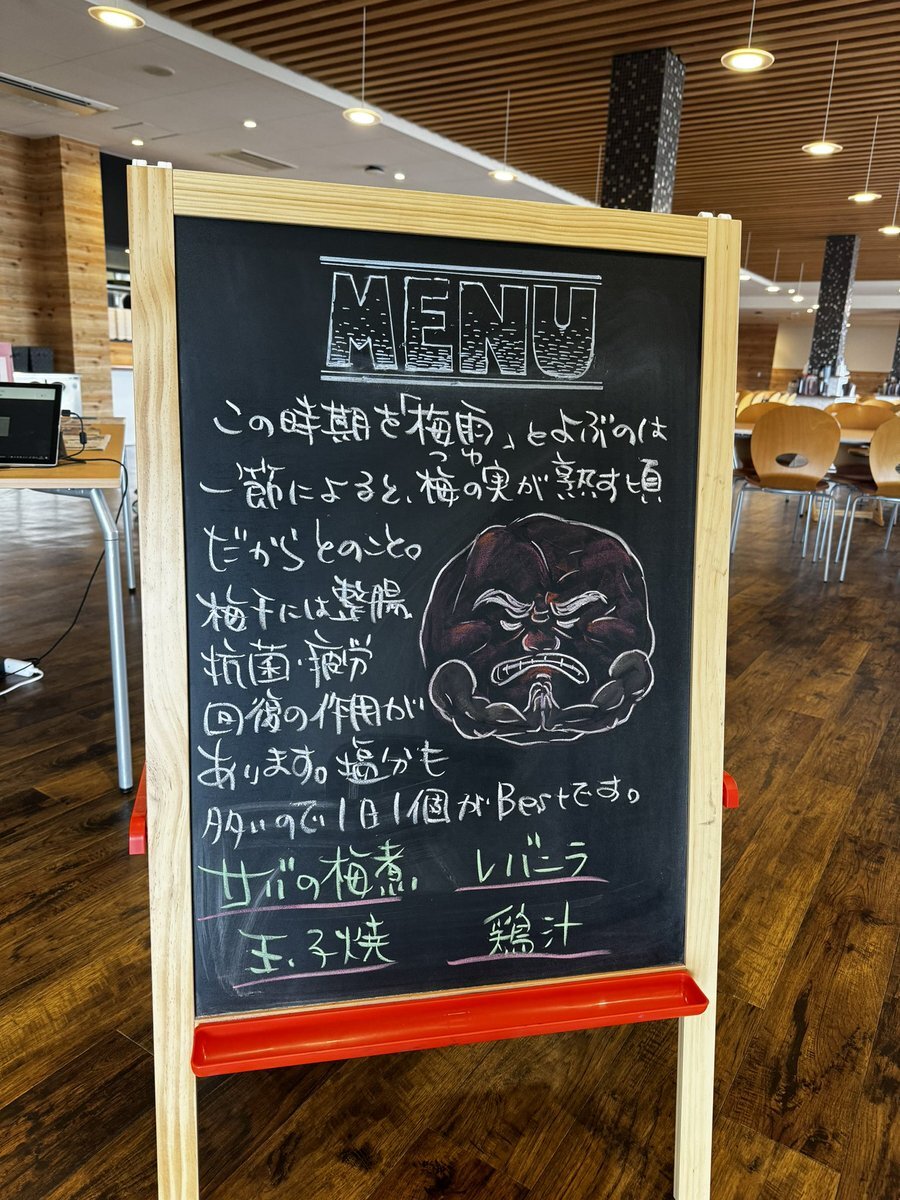 MENU
この時期を「梅雨」とよぶのは
つゆ
一節によると、梅の実が熟す頃
だからとのこと。
梅干には整腸
抗菌・疲労
回復の作用が
あります。塩分も
多いので1日1個がBestです。
サバの梅煮 レバニラ
玉子焼 鶏汁